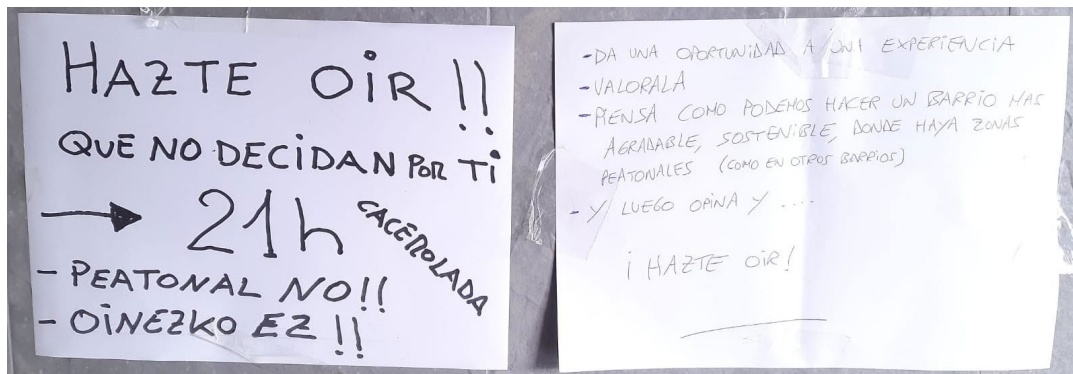 HAZTE OiR !!
QUE NO DECiDAN POR Ti
→ 21h
CACEROLADA
- PEATONAL NO!!
- OiNEZKO EZ !!
- DA UNA OPORTUNIDAD A UNA EXPERiENCiA
- VALORALA
- PiENSA COMO PODEMOS HACER UN BARRiO MAS
AGRADABLE, SOSTENiBLE, DONDE HAYA ZONAS
PEATONALES (COMO EN OTROS BARRiOS)
- Y LUEGO OPiNA Y ....
¡ HAZTE OiR!